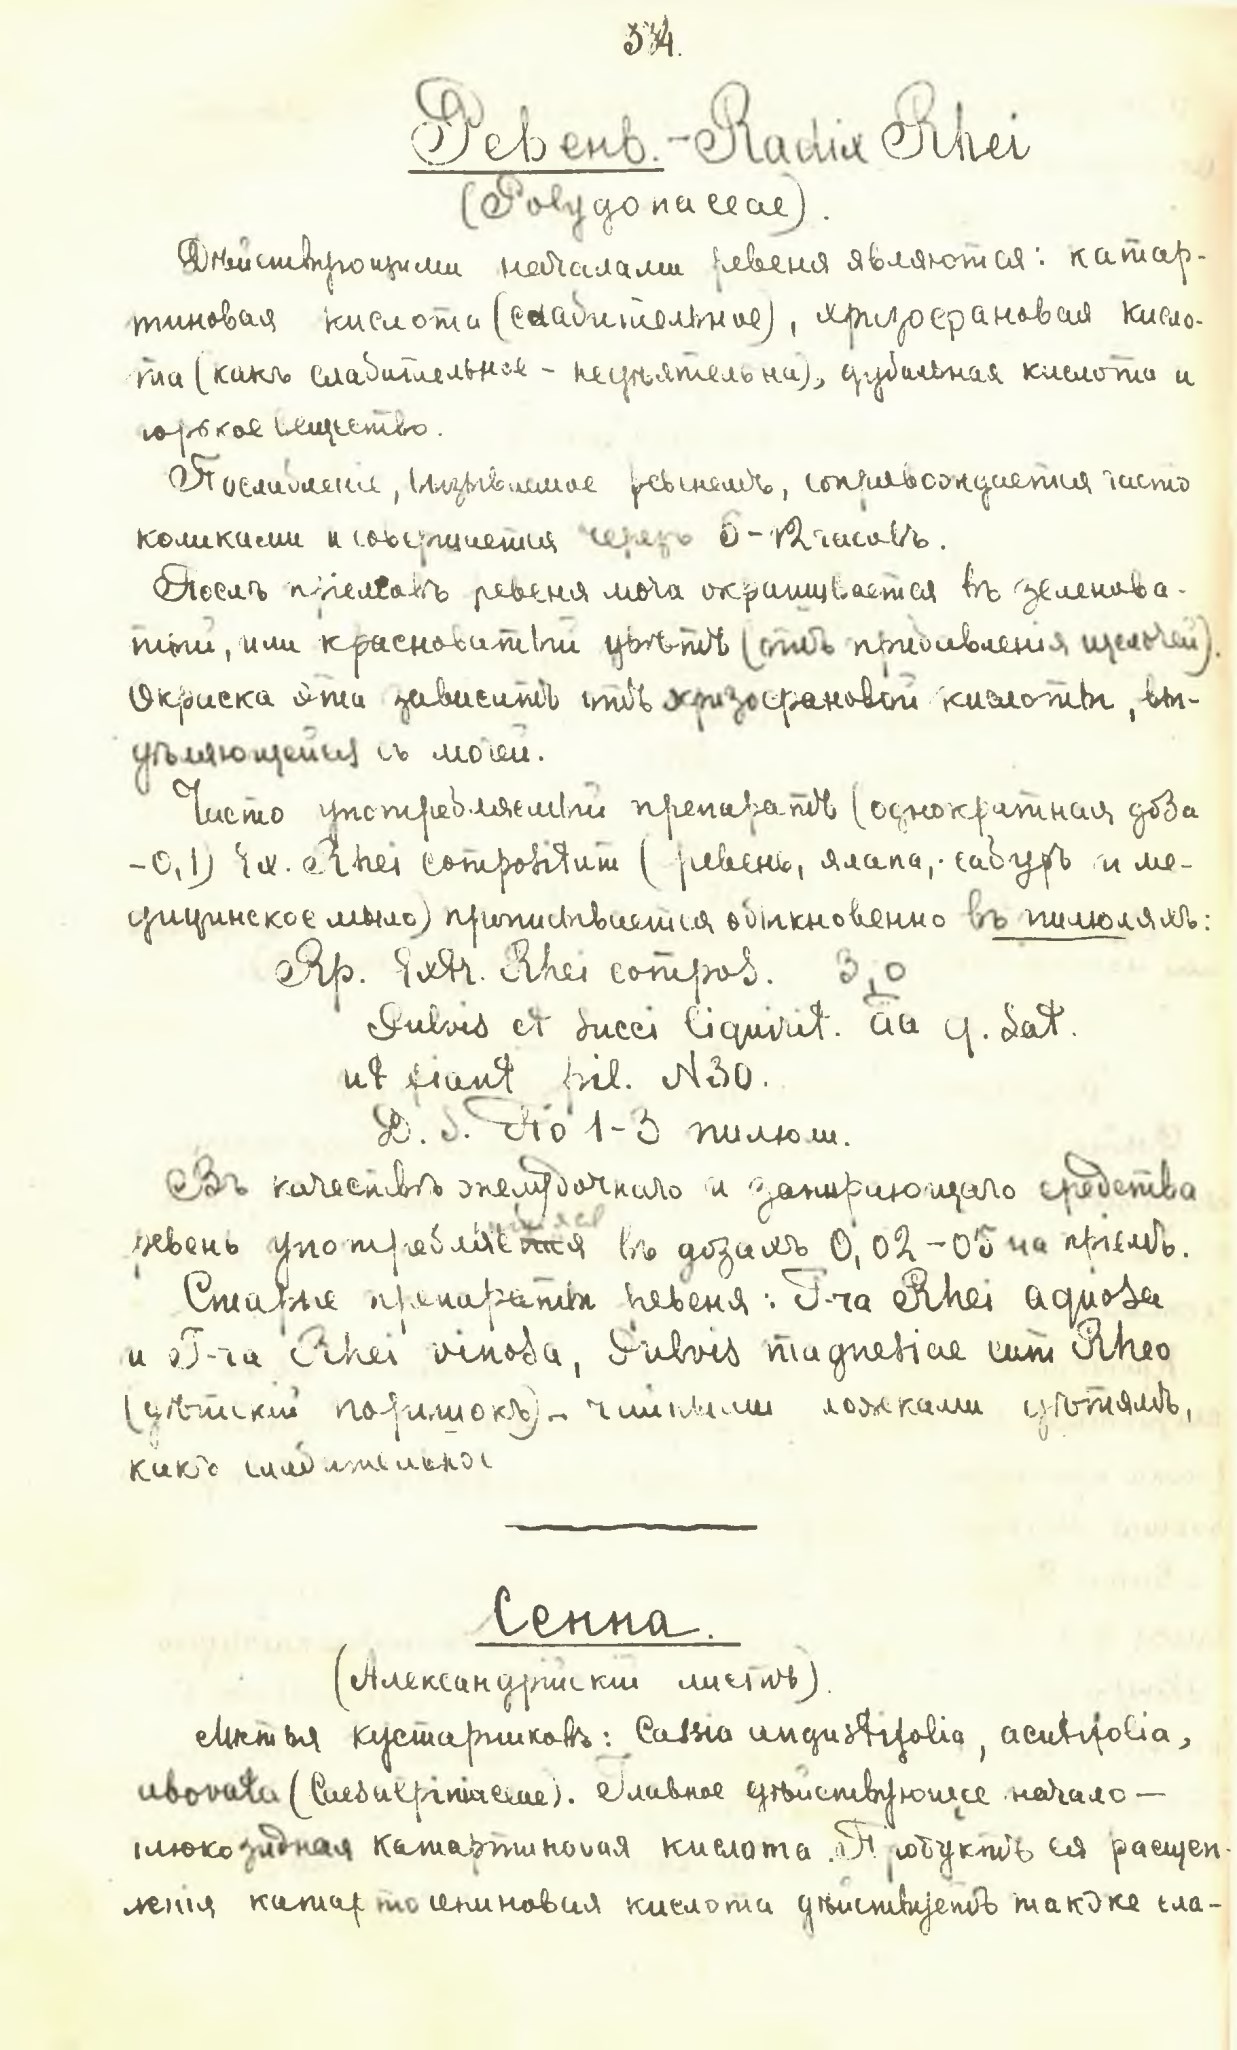 334.
Ревень. - Radix Rhei
(Polygonaceae).
Дѣйствующими началами ревеня являются: катар-
тиновая кислота (слабительное), хризофановая кисло-
та (какъ слабительное - недѣятельна), дубильная кислота и
горькое вещество.
Послабленіе, вызываемое ревенемъ, сопровождается часто
коликами и совершается черезъ 5-12 часовъ.
Послѣ пріемовъ ревеня моча окрашивается въ зеленова-
тый, или красноватый цвѣтъ (отъ прибавленія щелочей).
Окраска эта зависитъ отъ хризофановой кислоты, вы-
дѣляющейся съ мочей.
Часто употребляемый препаратъ (однократная доза
-0,1) Ex. Rhei compositum (ревень, ялапа, сабуръ и ме-
дицинское мыло) прописывается обыкновенно въ пилюляхъ:
Rp. Extr. Rhei compos. 3,0
Pulvis et succi liquirit. aa q. sat.
ut fiant pil. N30.
D. S. По 1-3 пилюли.
Въ качествѣ желудочнаго и запирающаго средства
ревень употребляется въ дозахъ 0,02-05 на пріемъ.
Старые препараты ревеня: T-ra Rhei aquosa
и T-ra Rhei vinosa, Pulvis magnesiae cum Rheo
(дѣтскій порошокъ) - чайными ложками дѣтямъ,
какъ слабительное
Сенна.
(Александрійскій листъ).
Листья кустарниковъ: Cassia angustifolia, acutifolia,
obovata (Caesalpiniaceae). Главное дѣйствующее начало —
глюкозидная катартиновая кислота. Продуктъ ея расщеп-
ленія катартогениновая кислота дѣйствуетъ также сла-